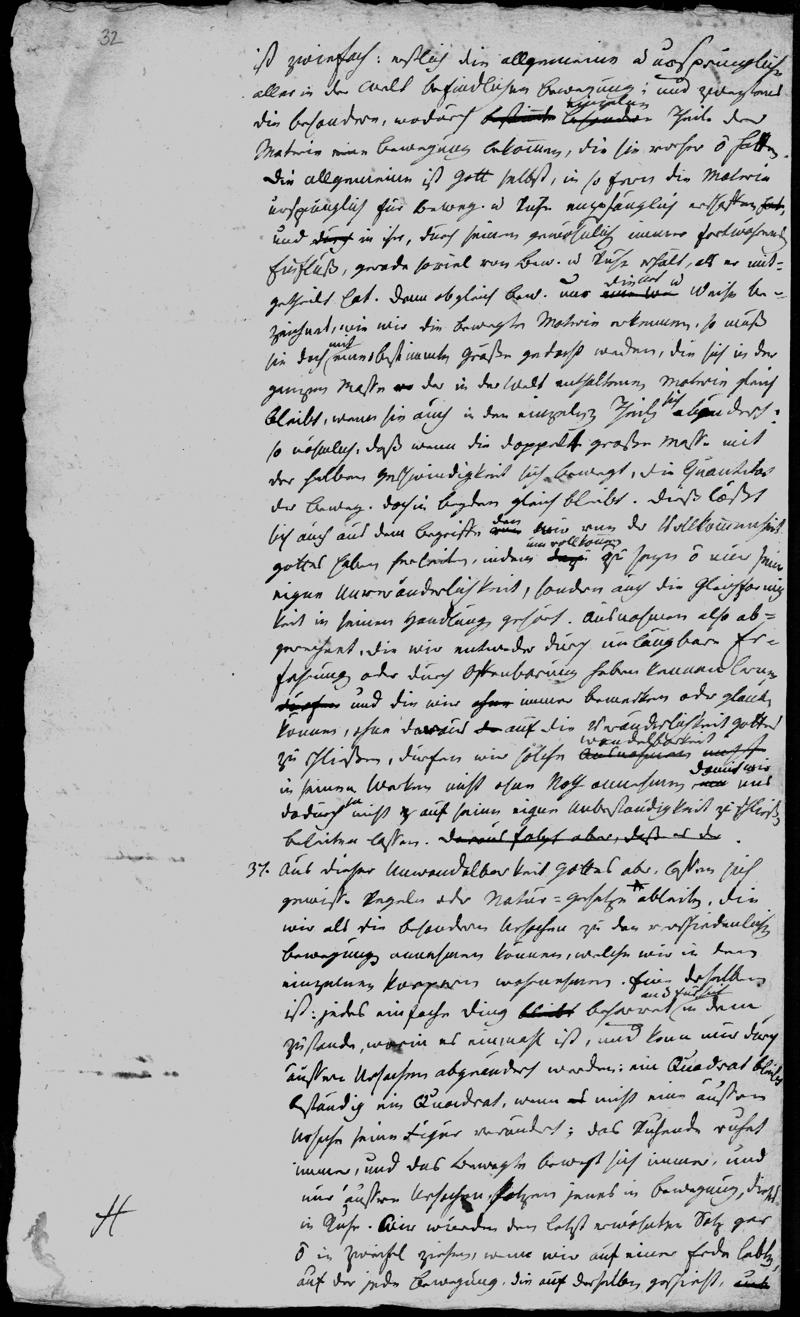 32
ist zwiefach: erstlich die allgemeine u ursprüngliche
aller in der Welt befindlichen Bewegung; und zweytens
die besondere, wodurch bestimmte besondere einzelne Theile der
Materie eine Bewegung bekommen, die sie vorher ō hatten.
Die allgemeine ist Gott selbst, in so fern die Materie
ursprünglich für Beweg. u Ruhe empfänglich erschaffen hat,
und durch in ihr, durch seinen gewöhnlich immer fortwährenden
Einfluß, gerade soviel von Bew. u Ruhe erhält, als er mit-
getheilt hat. Denn obgleich Bew. nur die Art u Weise be-
zeichnet, wie wir die bewegte Materie erkennen, so muß
sie doch mit einer bestimmten Größe gedacht werden, die sich in der
ganzen Masse der in der Welt enthaltenen Materie gleich
bleibt, wenn sie auch in den einzelnen Theilen sich abändert:
so nämlich, daß wenn die doppelt große Masse mit
der halben Geschwindigkeit sich bewegt, die Quantität
der Beweg. doch in beyden gleich bleibt. Dieß läßt
sich auch aus dem Begriffe den wir von der Vollkommenheit
Gottes haben herleiten, indem zu seyn ō nur seine
eigne Unveränderlichkeit, sondern auch die Gleichförmig-
keit in seinen Handlungen gehört. Ausnahmen also ab-
gerechnet, die wir entweder durch unläugbare Er-
fahrung oder durch Offenbarung haben kennen lernen
dürfen und die wir ohne immer bemerken oder glauben
können, ohne daraus auf die Veränderlichkeit Gottes
zu schließen, dürfen wir solche Wandelbarkeit Ausnahmen nicht
in seinen Werken nicht ohne Noth annehmen damit wir uns
dadurch nicht auf seine eigne Unbeständigkeit zu schließen
verleiten lassen. Daraus folgt aber, daß es der
37. Aus dieser Unwandelbarkeit Gottes aber, lassen sich
gewisse Regeln oder Natur-Gesetze ableiten, die
wir als die besondern Ursachen zu den verschiedentlichen
Bewegungen annehmen können, welche wir in den
einzelnen Körpern wahrnehmen. Eine derselben
ist: jedes einfache Ding bleibt beharret an und für sich in dem
Zustande, worin es einmahl ist, und kann nur durch
äußere Ursachen abgeändert werden: ein Quadrat bleibt
beständig ein Quadrat, wenn nicht eine äußere
Ursache seine Figur verändert; das Ruhende ruhet
immer, und das Bewegte bewegt sich immer, und
nur äußere Ursachen setzen jenes in Bewegung, dieses
in Ruhe. Wir würden den letzt erwähnten Satz gar
ō in Zweifel ziehen, wenn wir auf einer Erde lebten,
auf der jede Bewegung, die auf derselben geschieht, und
H